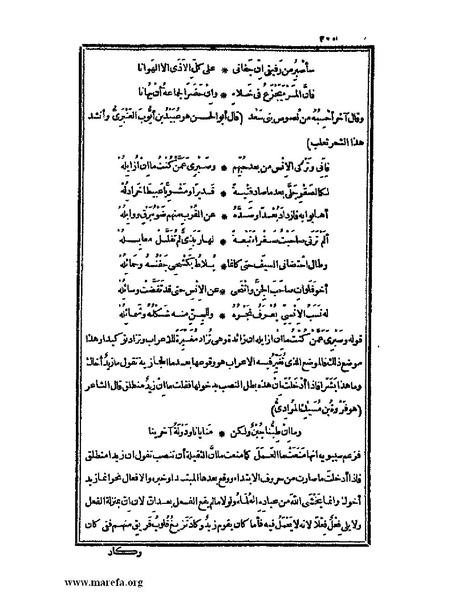 سأصبر من رفيقي ان جفاني * على كل الأذى الا الهوانا
فان المرء يجزع في خلاء * وان حضر الجماعة أن يهانا
وقال آخر أحسبه من لصوص بنى سعد (قال أبو الحسن هو عبيد بن أيوب العنبرى وأنشد
هذا الشعر ثعلب)
فانى وتركى الانس من بعد حبهم * وصبرى عمن كنت ما ان أزايله
لكالصقر جلى بعد ما صاد فتية * قديرا ومشويا عبيطا خرادله
أهابوا به فازداد بعدا وصده * عن القرب منهم ضوء برق ووابله
ألم ترنى صاحبت صفراء نبعة * لها ربذى لم تفلل معابله
وطال احتضانى السيف حتى كأنما * يلاط بكشحى جفنه وحمائله
أخو فلوات صاحب الجن وانتحى * عن الانس حتى قد تقضت وسائله
له نسب الانسى يعرف نجره * وللجن منه شكله وشمائله
قوله وصبرى عمن كنت ما ان أزايله ان زائدة وهى تزاد مغيرة للاعراب وتزاد توكيدا وهذا
موضع ذلك فالموضع الذى تغير فيه الاعراب هو وقوعها بعد ما الحجازية تقول ما زيد أخاك
وما هذا بشرا فاذا أدخلت ان هذه بطل النصب بدخولها فقلت ما ان زيد منطلق قال الشاعر
(هو فروة بن مسيك المرادى)
وما ان طبنا جبن ولكن * منايانا ودولة آخرينا
فزعم سيبويه انها منعت ما العمل كما منعت ما ان الثقيلة أن تنصب تقول ان زيدا منطلق
فاذا أدخلت ما صارت من حروف الابتداء ووقع بعدها المبتدأ وخبره والافعال نحو انما زيد
أخوك وانما يخشى الله من عباده العلماء ولولا ما لم يقع الفعل بعد ان لان ان بمنزلة الفعل
ولا يلى فعل فعلا لانه لا يعمل فيه فأما كان يقوم زيد وكاد تزيغ قلوب فريق منهم ففى كان
وكاد
www.marefa.org